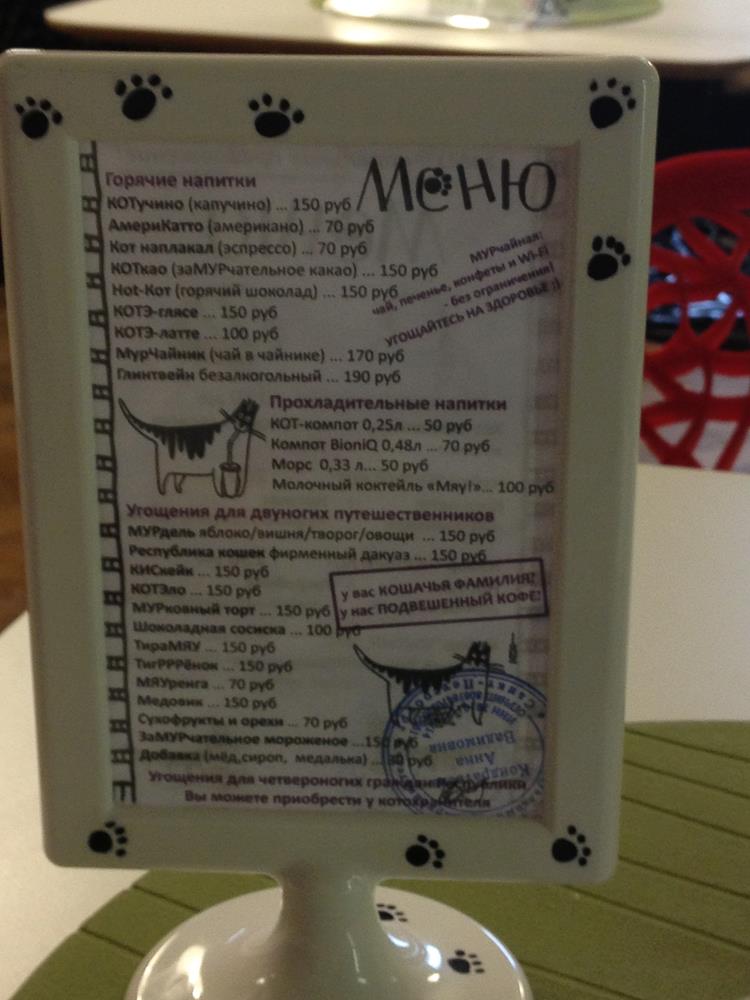 Меню
Горячие напитки
КОТучино (капучино) ... 150 руб
АмериКатто (американо) ... 70 руб
Кот наплакал (эспрессо) ... 70 руб
КОТкао (заМУРчательное какао) ... 150 руб
Hot-Кот (горячий шоколад) ... 150 руб
КОТЭ-глясе ... 150 руб
КОТЭ-латте ... 100 руб
МурЧайник (чай в чайнике) ... 170 руб
Глинтвейн безалкогольный ... 190 руб
МУРчайная:
чай, печенье, конфеты и Wi-Fi
- без ограничения!
УГОЩАЙТЕСЬ НА ЗДОРОВЬЕ :)
Прохладительные напитки
КОТ-компот 0,25л ... 50 руб
Компот BioniQ 0,48л ... 70 руб
Морс 0,33 л... 50 руб
Молочный коктейль «Мяу!»... 100 руб
Угощения для двуногих путешественников
МУРдель яблоко/вишня/творог/овощи ... 150 руб
Республика кошек фирменный дакуаз ... 150 руб
КИСкейк ... 150 руб
КОТЭло ... 150 руб
МУРковный торт ... 150 руб
Шоколадная сосиска ... 100 руб
ТираМЯУ ... 150 руб
ТигРРРёнок ... 150 руб
МЯУренга ... 70 руб
Медовик ... 150 руб
Сухофрукты и орехи ... 70 руб
ЗаМУРчательное мороженое ...150 руб
Добавка (мёд,сироп, медалька) ... 30 руб
у вас КОШАЧЬЯ ФАМИЛИЯ?
у нас ПОДВЕШЕННЫЙ КОФЕ!
Угощения для четвероногих граждан Республики
Вы можете приобрести у котохранителя
Анна
Вадимовна